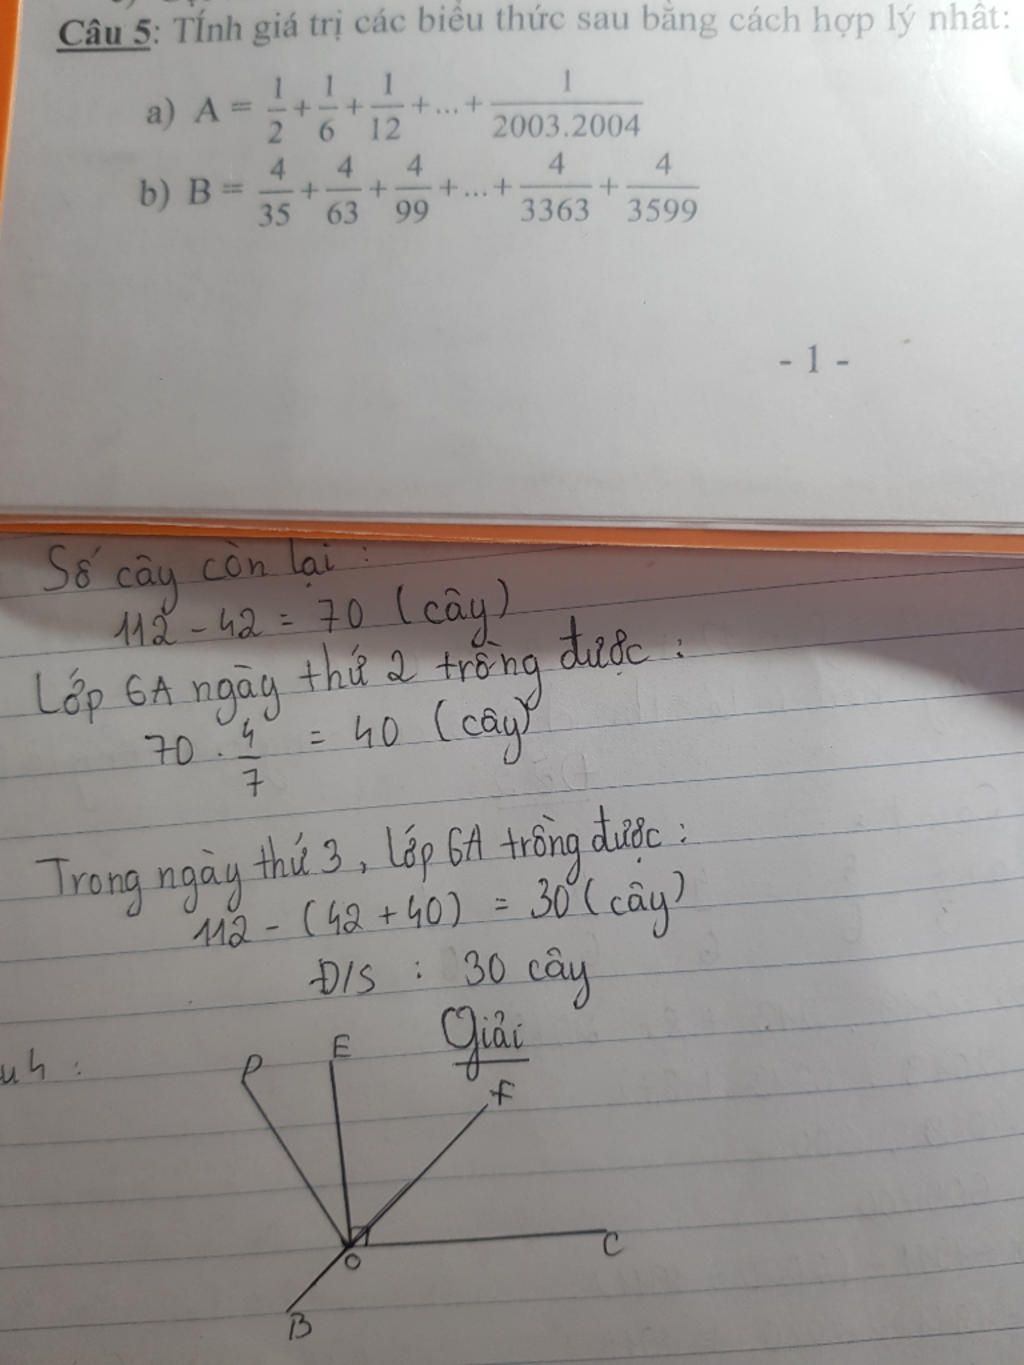 Câu 5: TÍnh giá trị các biểu thức sau bằng cách hợp lý nhất:
a) A = 1/2 + 1/6 + 1/12 + ... + 1/2003.2004
b) B = 4/35 + 4/63 + 4/99 + ... + 4/3363 + 4/3599
- 1 -
Số cây còn lại :
112 - 42 = 70 (cây)
Lớp 6A ngày thứ 2 trồng được :
70 . 4/7 = 40 (cây)
Trong ngày thứ 3, lớp 6A trồng được :
112 - (42 + 40) = 30 (cây)
Đ/S : 30 cây
Giải
4 :
P E F
O C
B